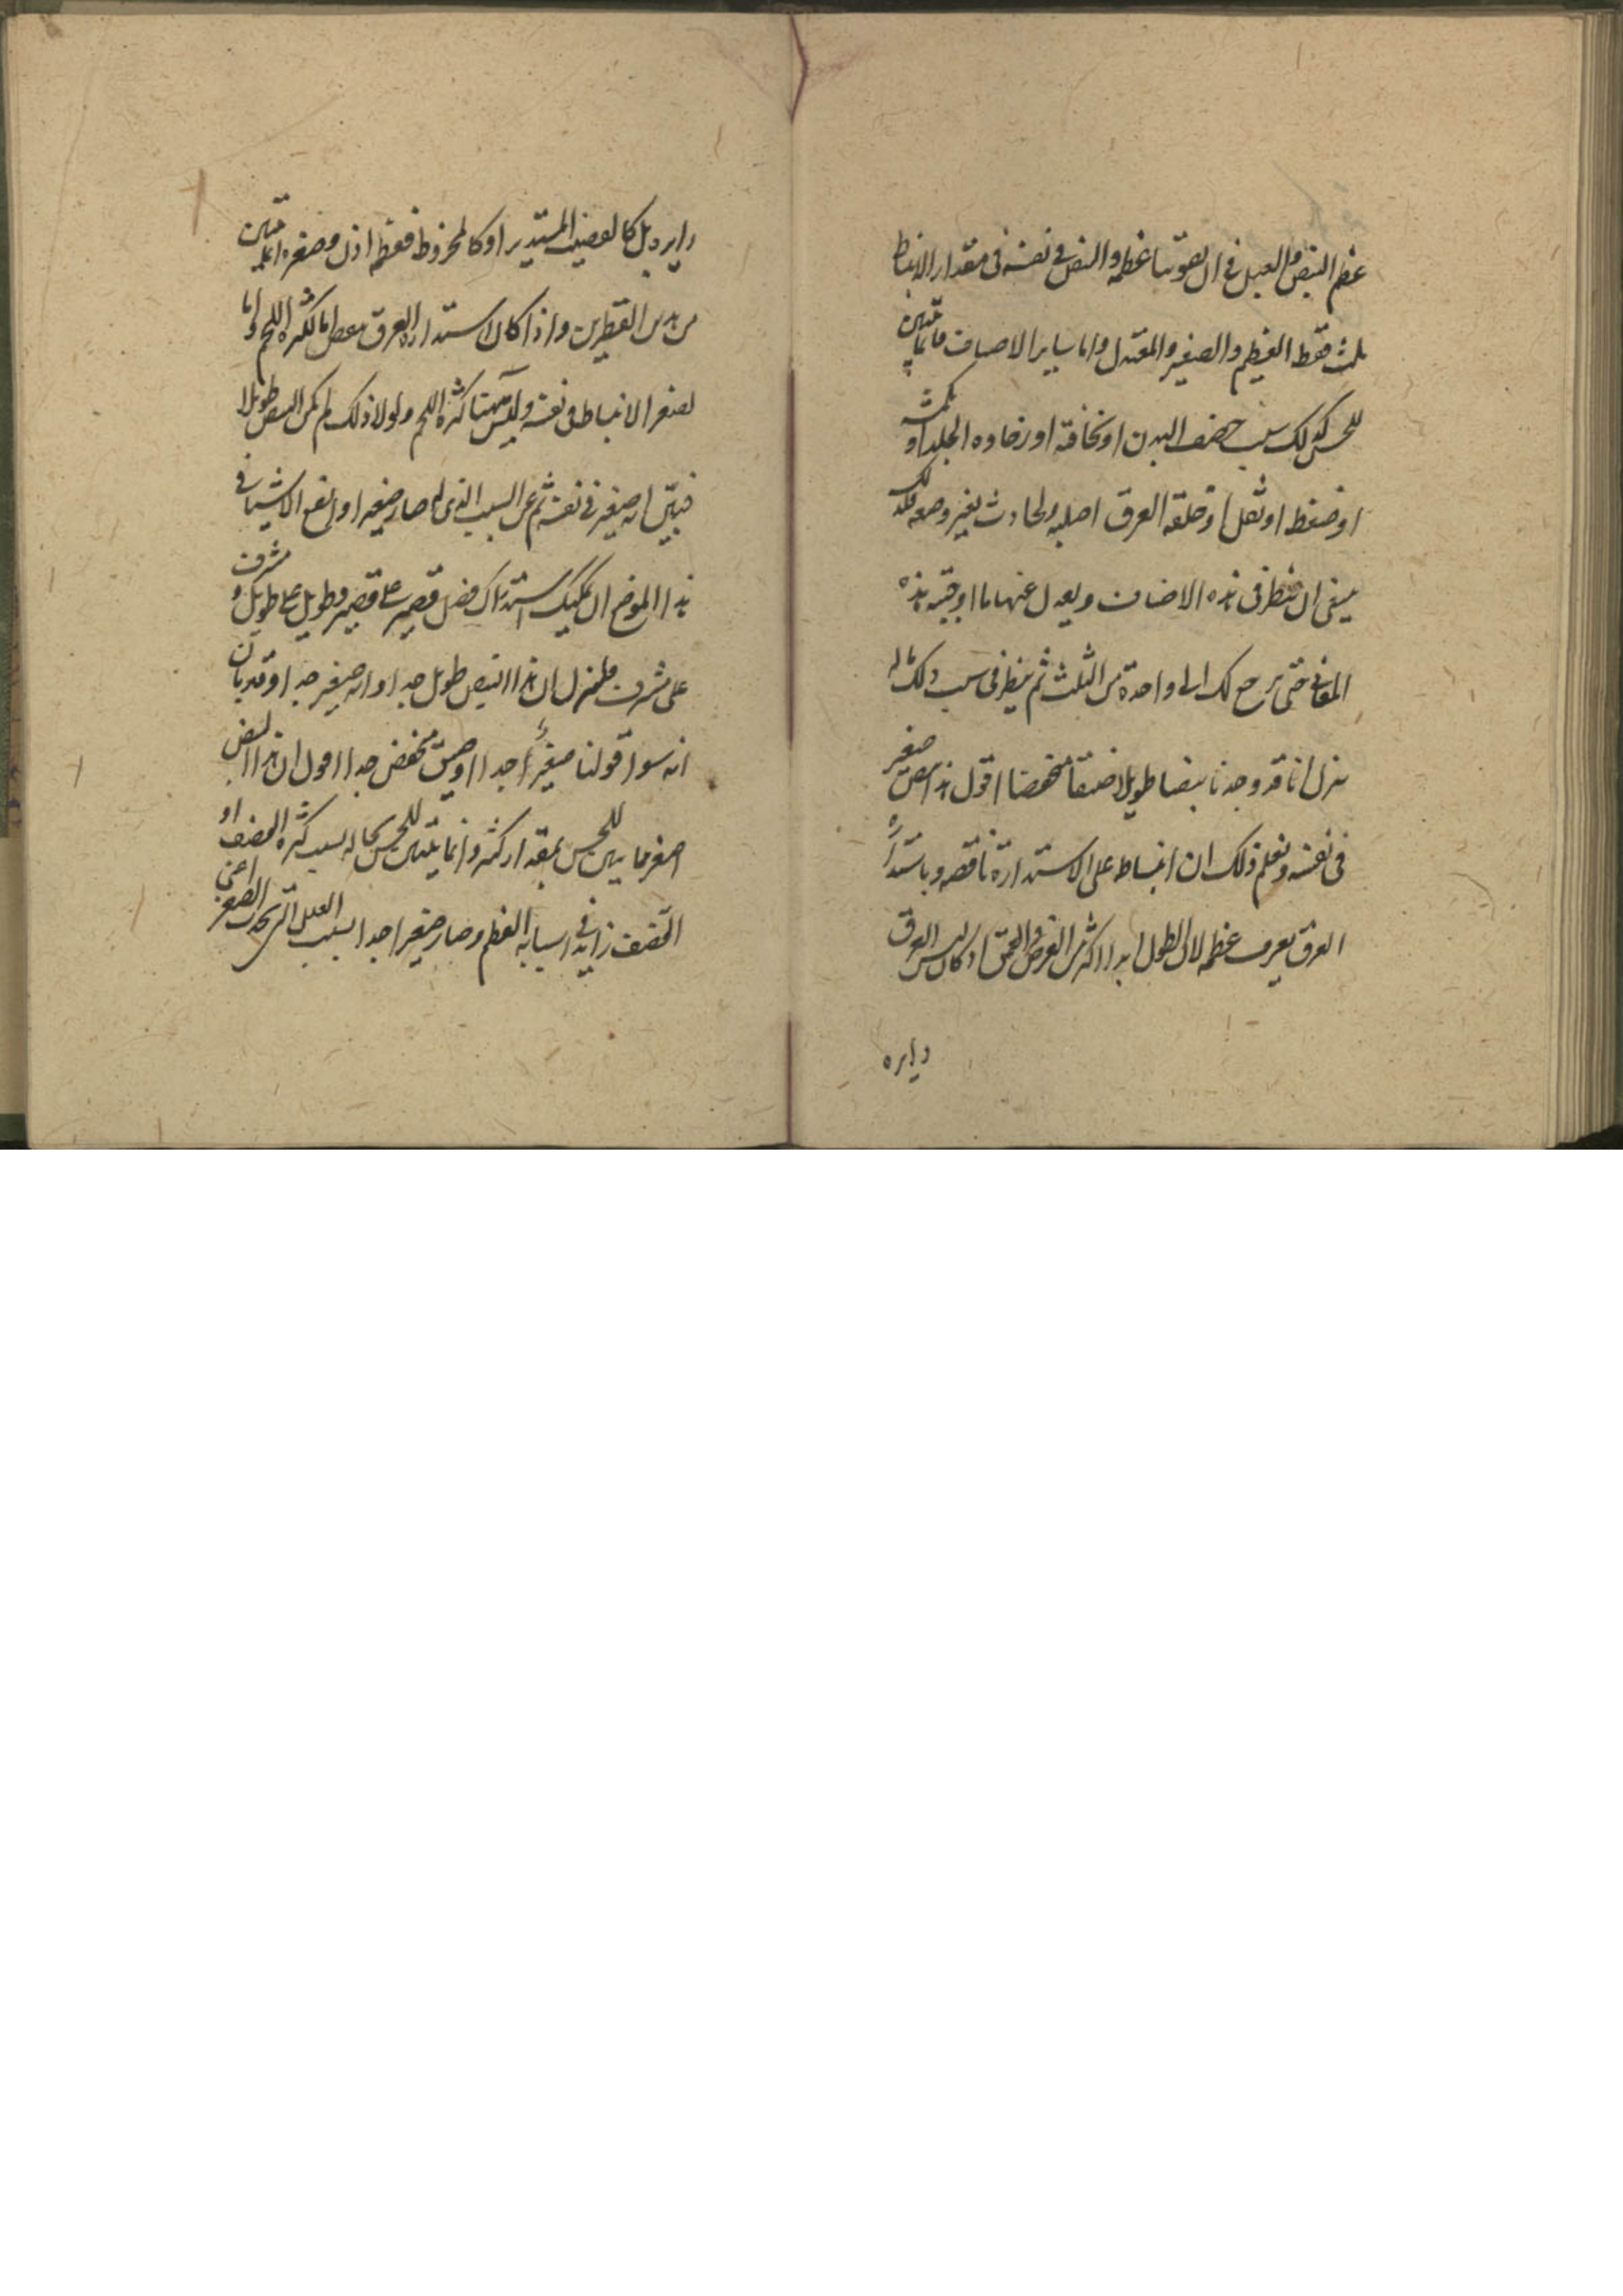 عظم النبض والعبل في ان يفوتنا عظمه والنبض في نفسه في مقدار الانبساط
ثلث فقط العظيم والصغير والمعتدل واما ساير الاصناف فانما تتبين
للحس كذلك بسبب قضف البدن او نحافته او رخاوه الجلد او تكمشه
او ضغط او ثقل او خلقه العرق اصليه والحادث بغير وضعه فلذلك
ينبغي ان ينظر في هذه الاصناف ويعدل عنها ما اوجبته هذه
المعاني حتى يرجع لك الى واحدة من الثلث ثم ينظر في سبب ذلك مثاله
ننزل انا قد وجدنا نبضا طويلا ضيقا منخفضا اقول هذا النبض صغير
في نفسه ونعلم ذلك ان انبساط على الاستدارة ناقصه وباستداره
العرق يعرف عظمه لان الطول ابدا اكثر من العرض والعمق اذ كان ليس العرق
دايره
دايره بل كالقضيب المستدير او كالمخروط فعظمه اذن وصغره انما يتبين
من هذين القطرين واذا كان الاستداره العرق نقصا اما لكثره اللحم واما
لصغر الانبساط في نفسه وليس ههنا كثره اللحم ولولا ذلك لم يكن النبض طويلا
فتبين انه صغير في نفسه ثم عن السبب الذي له صار صغيرا وانفع الاشياء في
هذا الموضع ان يمكنك استدراك فضل قصير على قصير وطويل على طويل ومشرف
على مشرف فلننزل ان هذا النبض طويل جدا وانه صغير جدا وقد بان
انه سوا قولنا صغير جدا او ضيق منخفض جدا اقول ان هذا النبض
اصغر مما يبين للحس بمقدار كثير وانما يتبين للحس بحاله بسبب كثره القضف او
القضف زايد في اسبابه العظم وصار صغيرا جدا بسبب العلل التي تحدث الصغر اعني